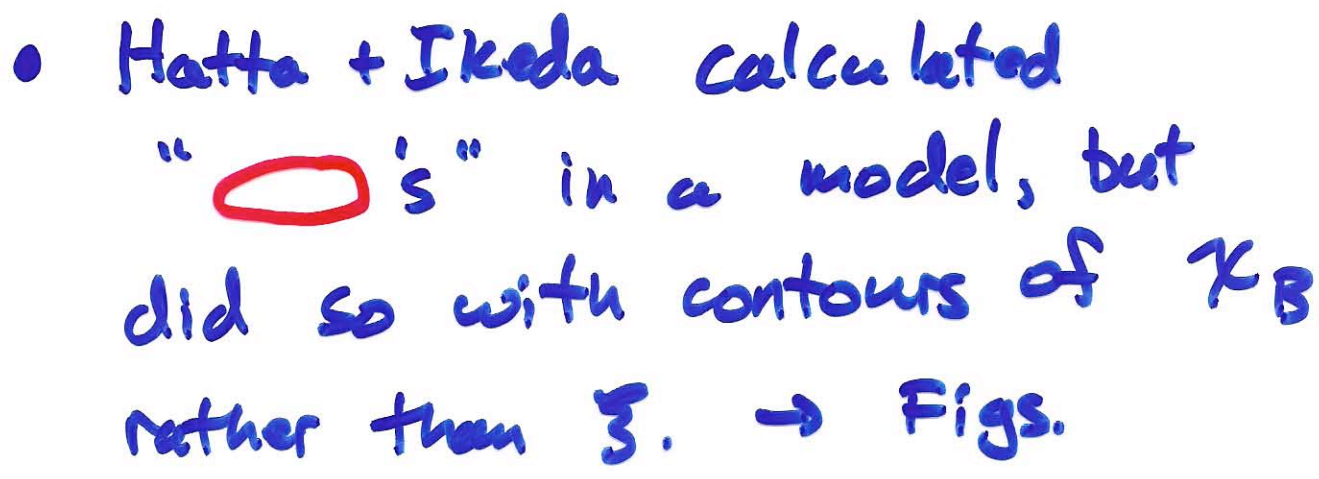 • Hatta + Ikeda calculated
" 's" in a model, but
did so with contours of χ_B
rather than ξ. → Figs.